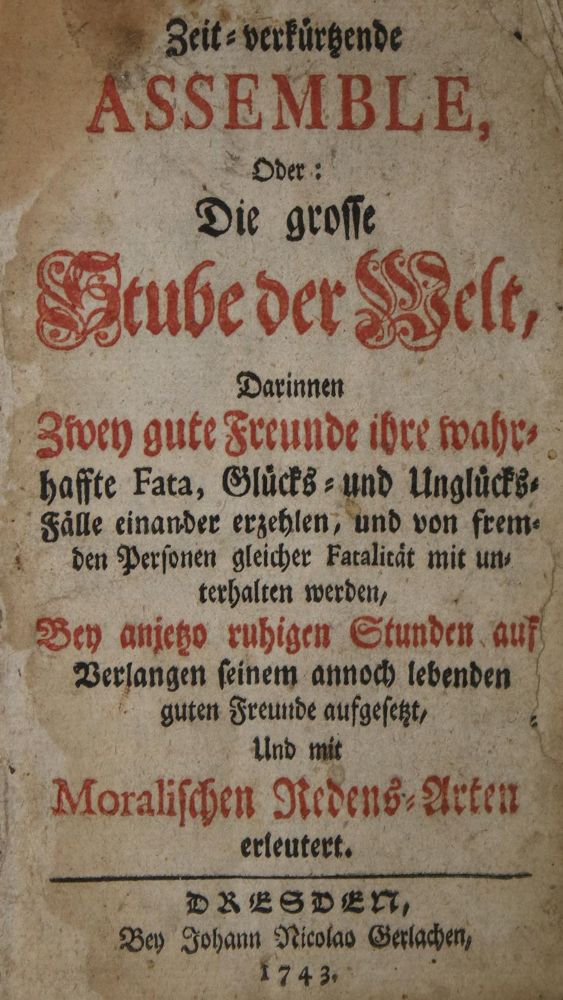 Zeit-verkürtzende
ASSEMBLE,
Oder:
Die grosse
Stube der Welt,
Darinnen
Zwey gute Freunde ihre wahr-
haffte Fata, Glücks- und Unglücks-
Fälle einander erzehlen, und von frem-
den Personen gleicher Fatalität mit un-
terhalten werden,
Bey anjetzo ruhigen Stunden auf
Verlangen seinem annoch lebenden
guten Freunde aufgesetzt,
Und mit
Moralischen Redens-Arten
erleutert.
DRESDEN,
Bey Johann Nicolao Gerlachen,
1743.